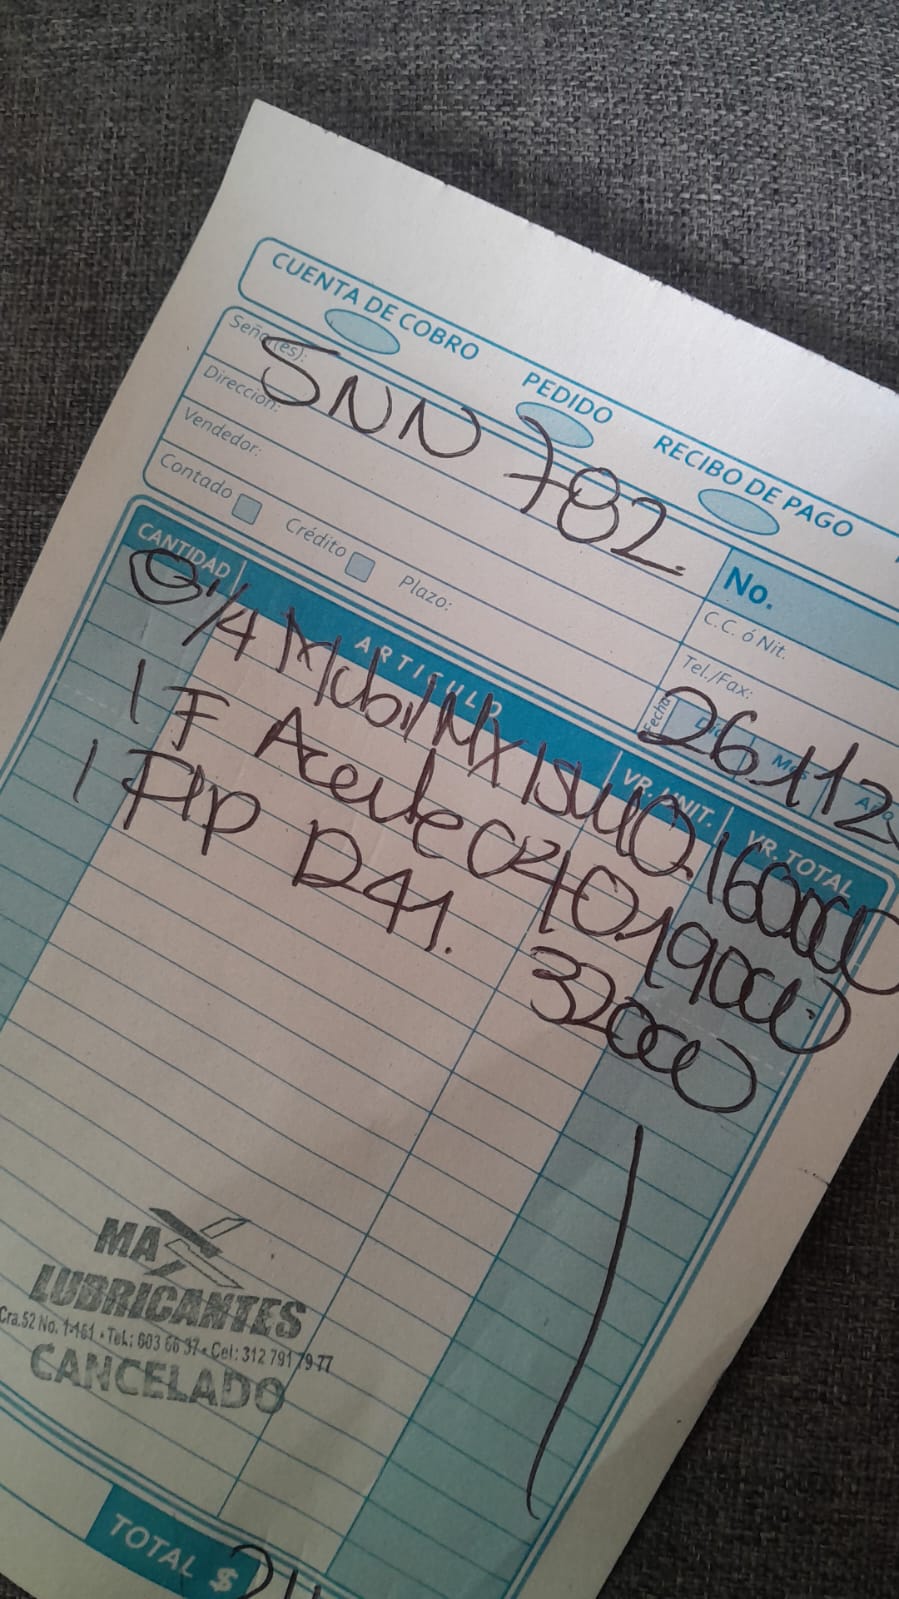 CUENTA DE COBRO PEDIDO RECIBO DE PAGO
Señor(es): SNN 782.
Dirección:
Vendedor:
Contado Crédito Plazo:
No.
C.C. ó Nit.
Tel./Fax:
Fecha Día Mes Año
26 11 2
CANTIDAD ARTICULO VR. UNIT. VR. TOTAL
1/4 Mobil Mx 15W40. 160000
1 F Aceite 0240. 19000
1 FAP D41. 32000
MAX
LUBRICANTES
Cra.52 No. 1-161 • Tel.: 603 66 37 • Cel: 312 791 79 77
CANCELADO
TOTAL $